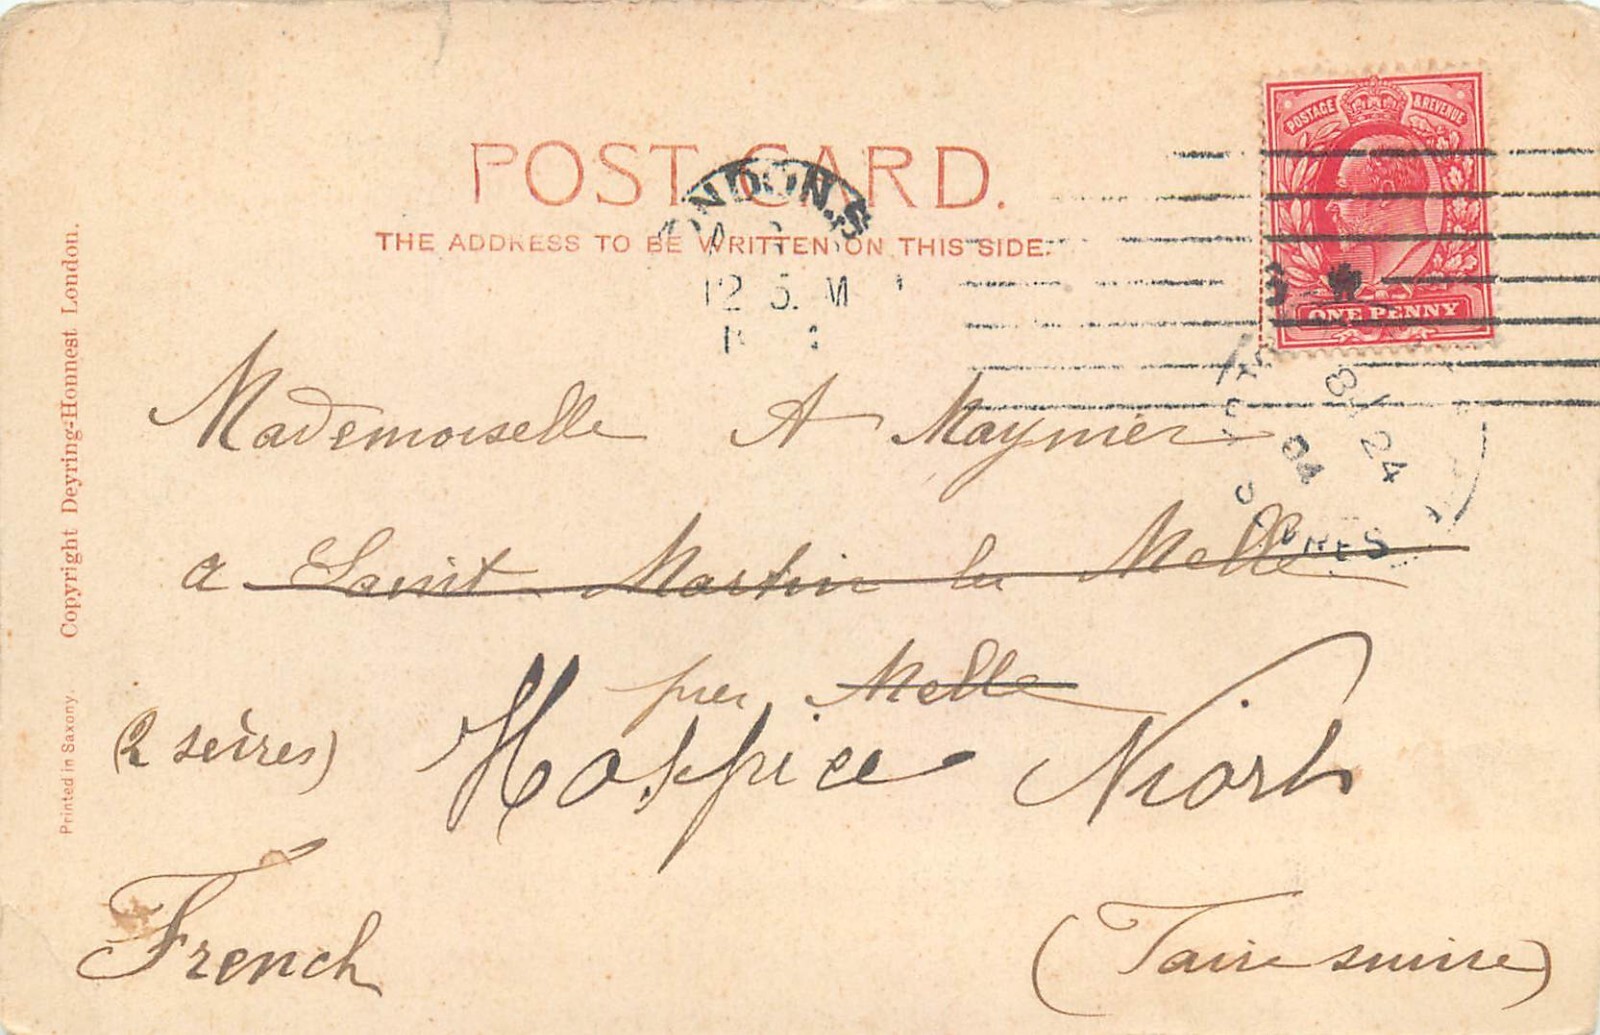 POSTAGE & REVENUE
POST CARD.
LONDON. S
THE ADDRESS TO BE WRITTEN ON THIS SIDE.
12 5. M
ONE PENNY
24
04
Mademoiselle A Maynier
a Saint Martin les Melle
près Melle
(2 sèvres) Hospice Niort
French (Faire suivre)
Copyright Deyring-Honnest London.
Printed in Saxony.